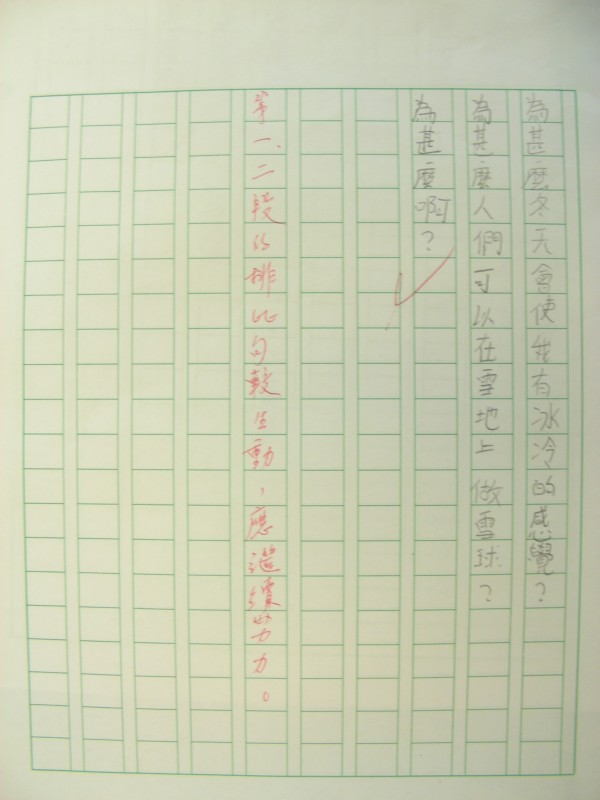 為甚麼冬天會使我有冰冷的感覺？
為甚麼人們可以在雪地上做雪球？
為甚麼啊？
第一、二段的排比句較生動，應繼續努力。